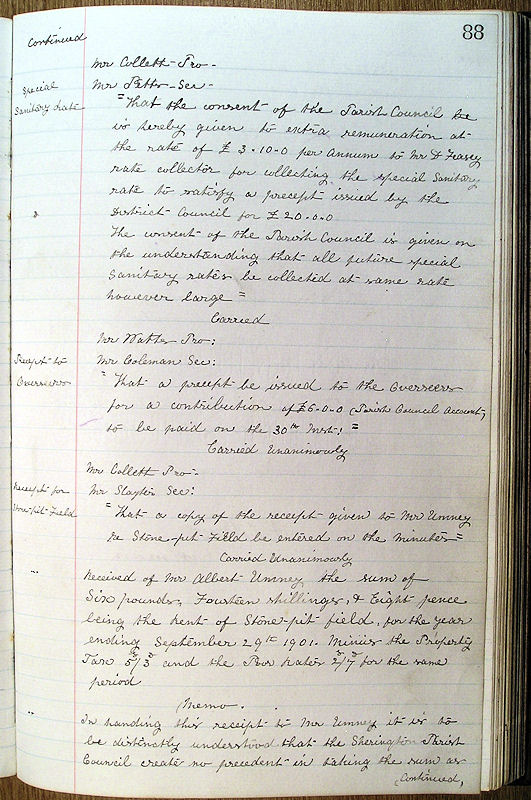 88
Continued
Mr Collett - Pro -
Special
Mr Petts - Sec -
Sanitary Rate
"That the consent of the Parish Council be
is hereby given to extra remuneration at
the rate of £3-10-0 per Annum to Mr F Feasey
rate collector for collecting the special Sanitary
rate to satisfy a precept issued by the
District Council for £20-0-0
The consent of the Parish Council is given on
the understanding that all future special
Sanitary rates be collected at same rate
however large"
Carried
Mr Watts Pro:
Precept to
Mr Coleman Sec:
Overseers
"That a precept be issued to the Overseers
for a contribution of £6-0-0 (Parish Council Account)
to be paid on the 30th Inst:"
Carried Unanimously
Mr Collett Pro -
Receipt for
Mr Slayter Sec:
Stone-pit Field
"That a copy of the receipt given to Mr Umney
re Stone-pit Field be entered on the minutes"
Carried Unanimously
Received of Mr Albert Umney the sum of
Six pounds, Fourteen shillings, & Eight pence
being the rent of Stone-pit field, for the year
ending September 29th 1901. Minus the Property
Tax 5/3 and the Poor Rates 2/7 for the same
period
Memo.
In handing this receipt to Mr Umney it is to
be distinctly understood that the Sherington Parish
Council create no precedent in taking the sum as
(Continued,